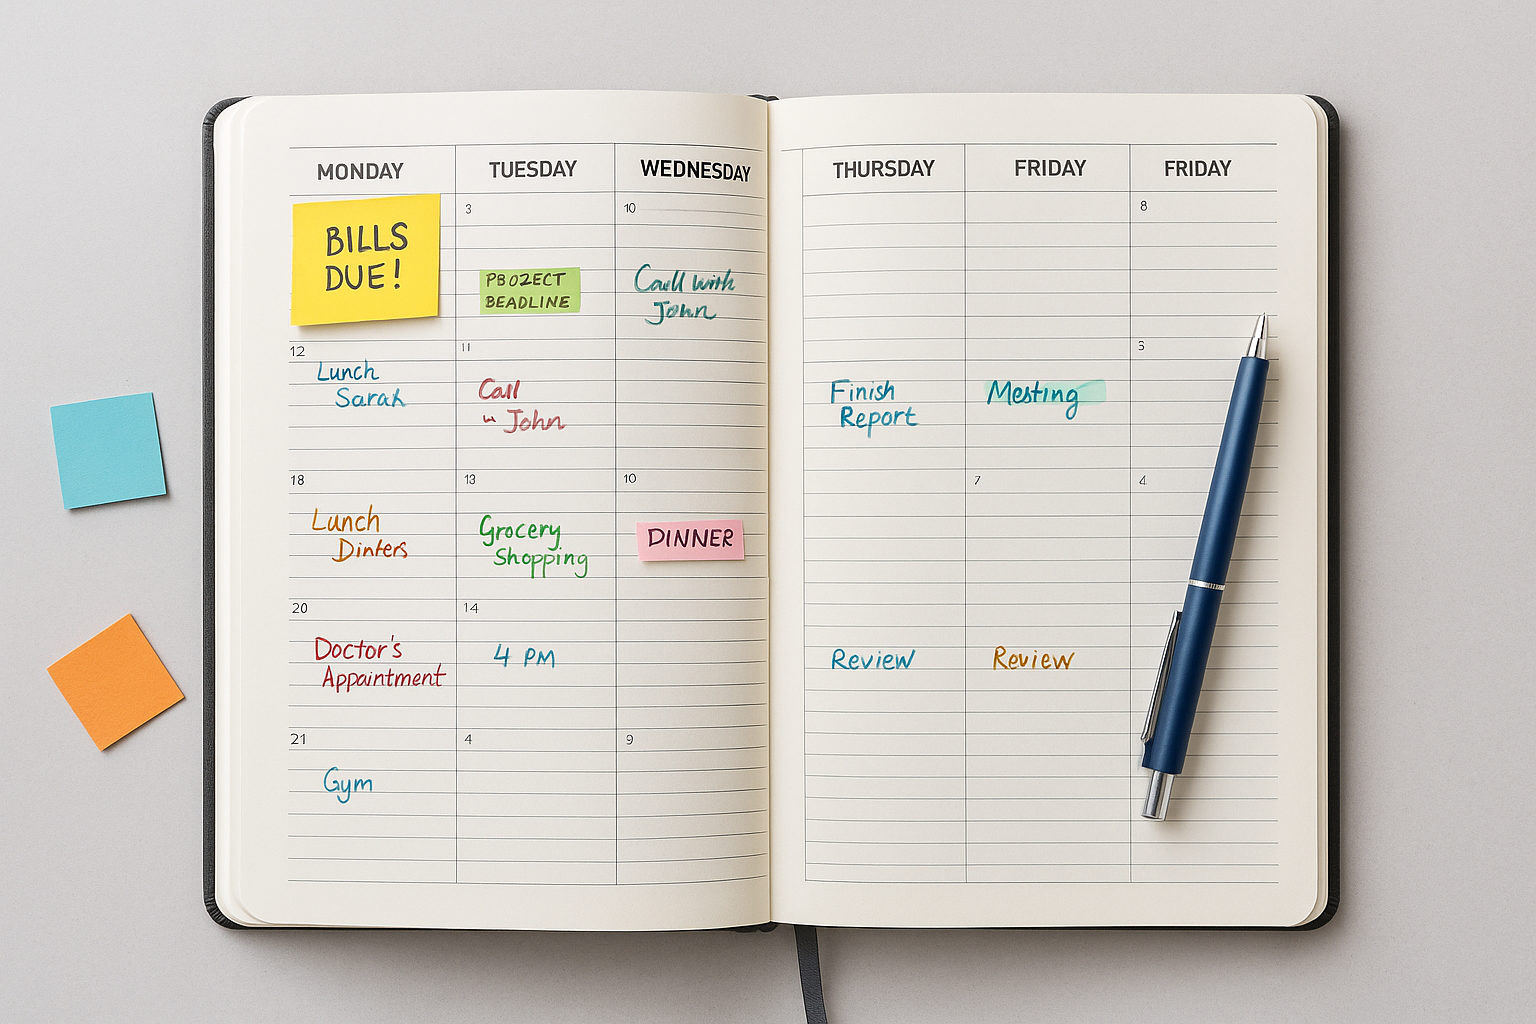 MONDAY TUESDAY WEDNESDAY THURSDAY FRIDAY FRIDAY
BILLS
DUE!
3
PBOZECT
BEADLINE
10
Call with
John
8
12
Lunch
Sarah
11
Call
w John
Finish
Report
Mesting
18
Lunch
Dinters
13
Grocery
Shopping
10
DINNER
7
4
20
Doctor's
Appaintment
14
4 PM
Review
Review
21
Gym
4
9